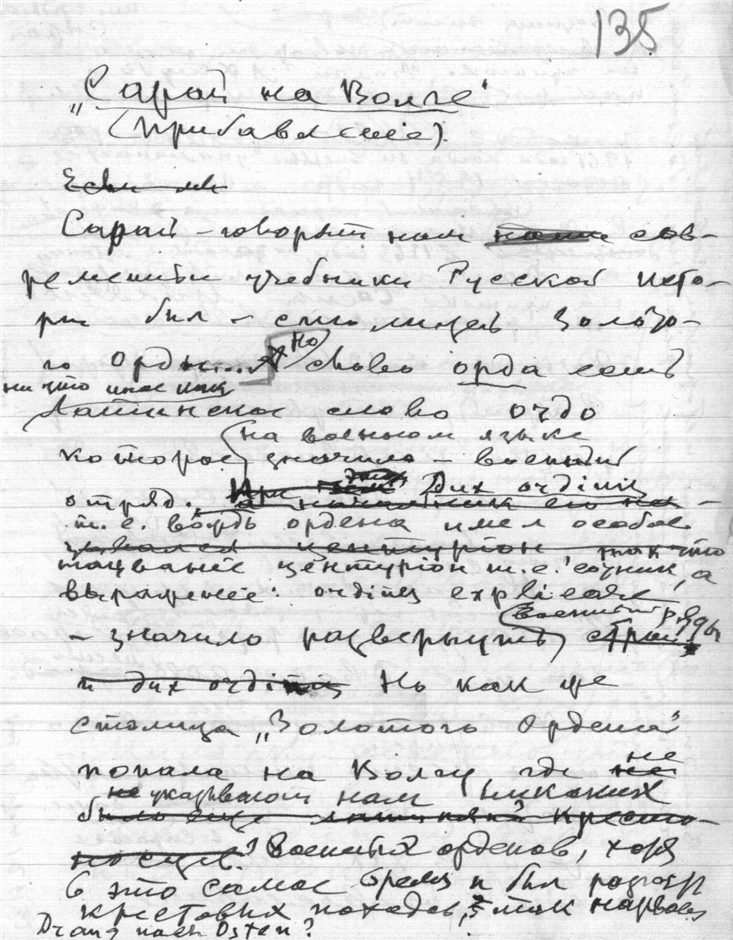 135
„Сарай на Волге“
(прибавление).
Если мы
Сарай – говорят нам наши сов-
ременные учебники Русской исто-
рии был – столицей Золото-
го орды... А Но слово орда есть
ни что иное как
Латинское слово ordo
на военном языке
которое значило – военный
отряд. При этом Dux ordinis
а начальник его на-
т. е. вождь ордена имел особое
зывался центурiон так что
название центурiон т. е. сотник, а
выражение: ordines explicare
военный рядъ
– значило развернуть строй
и dux ordinis Но как же
столица „Золотого Ордена“
попала на Волгу где не
не указывают нам никаких
было еще крестоносцев?
военных орденов, хотя
в это самое время и был разгар
крестовых походов, и так назваем
Drang nach Osten?